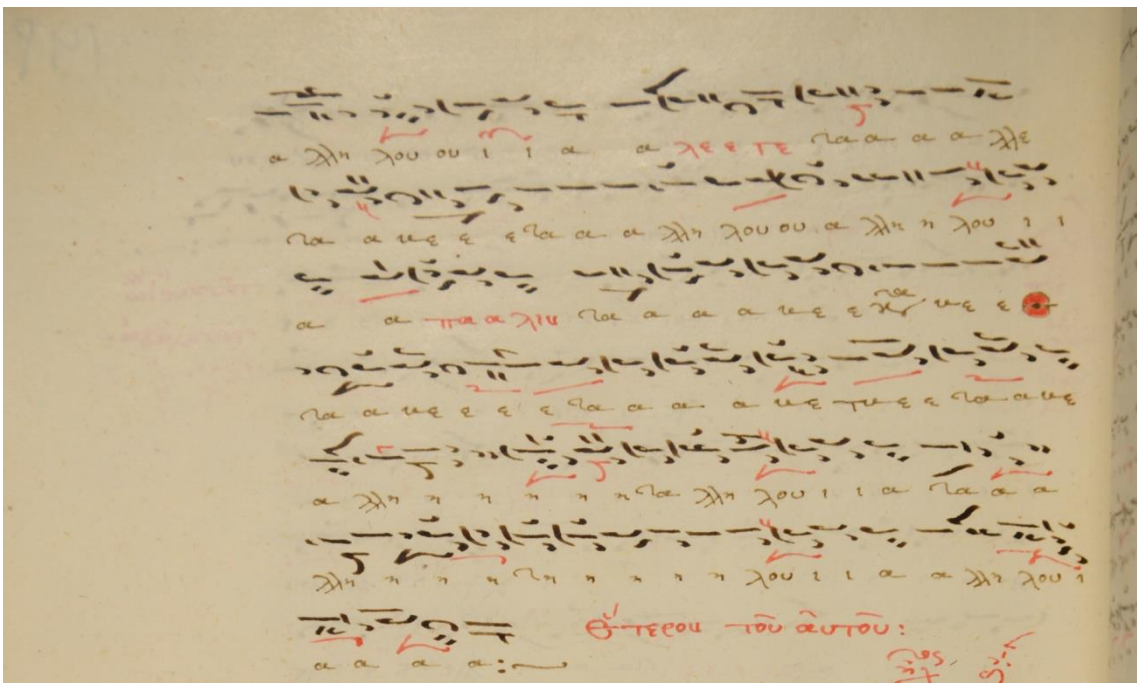 α λλη λου ου ι ι α α λε ε τε τα α α α α λλε
τα α κε ε ε τα α α λλη λου ου α λλη η λου ι ι
α α πα α λιν τα α α α κε ε κε ε
τα α κε ε ε ε τα α α α κε τικε ε τα α κε
α λλη η η η η η τα λλη λου ι ι α τα α α
λλη η η η η τη η η η η η λου ι ι α α λλη λου ι
α α α α :
Ἕτερον τοῦ αὐτοῦ :